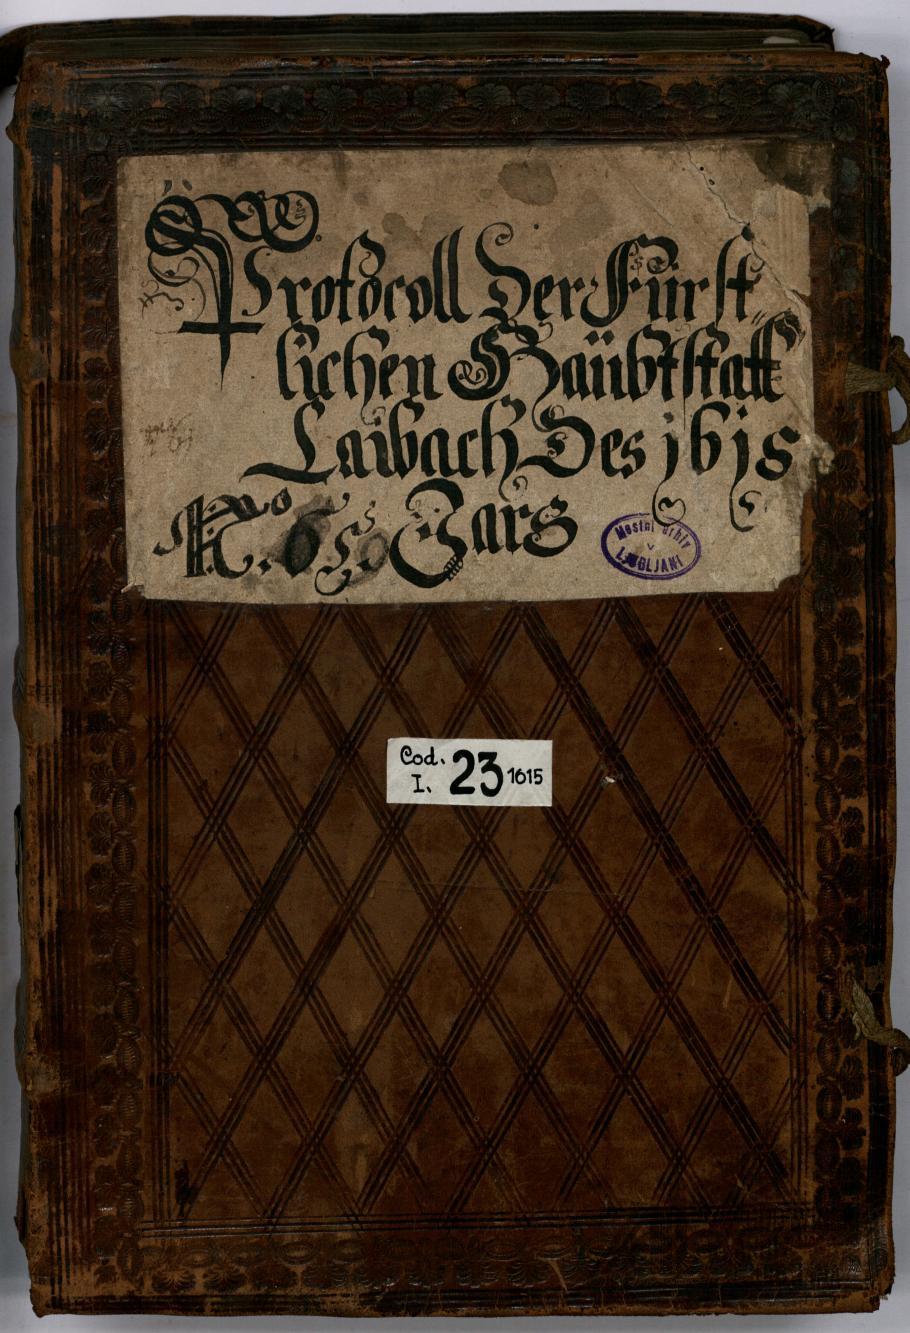 Protocoll Der Fürst
lichen Haübtstatt
Laibach Des 1615
No. 65. Jars
Mestni arhiv
v
LJUBLJANI
Cod.
I. 23 1615